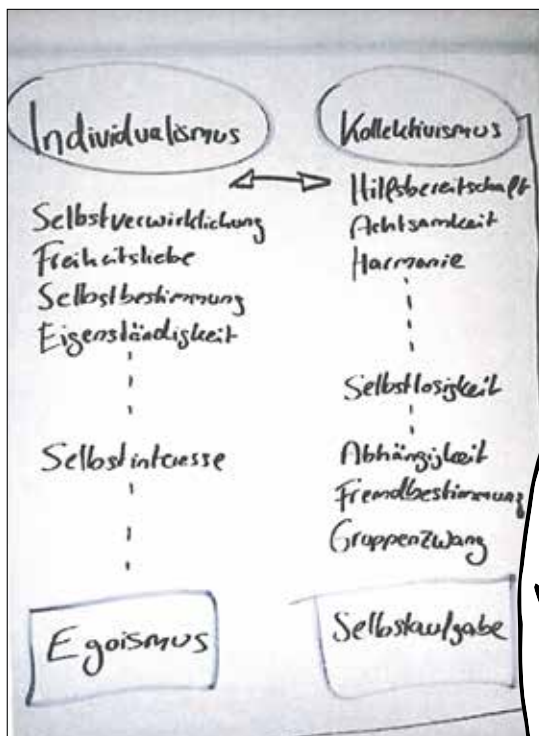 Individualismus
Selbstverwirklichung
Freiheitsliebe
Selbstbestimmung
Eigenständigkeit
Selbstinteresse
Egoismus
Kollektivismus
Hilfsbereitschaft
Achtsamkeit
Harmonie
Selbstlosigkeit
Abhängigkeit
Fremdbestimmung
Gruppenzwang
Selbstaufgabe